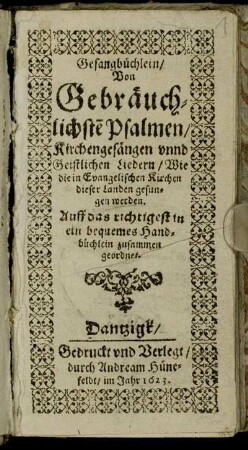 Gesangbüchlein/
Von
Gebräuch-
lichstē Psalmen/
Kirchengesängen vnnd
Geistlichen Liedern/ Wie
die in Evangelischen Kirchen
dieser Landen gesun-
gen werden.
Auff das richtigest in
ein bequemes Hand-
büchlein zusammen
geordnet.
Dantzigk/
Gedruckt vnd Verlegt/
durch Andream Hüne-
feldt/ im Jahr 1623.